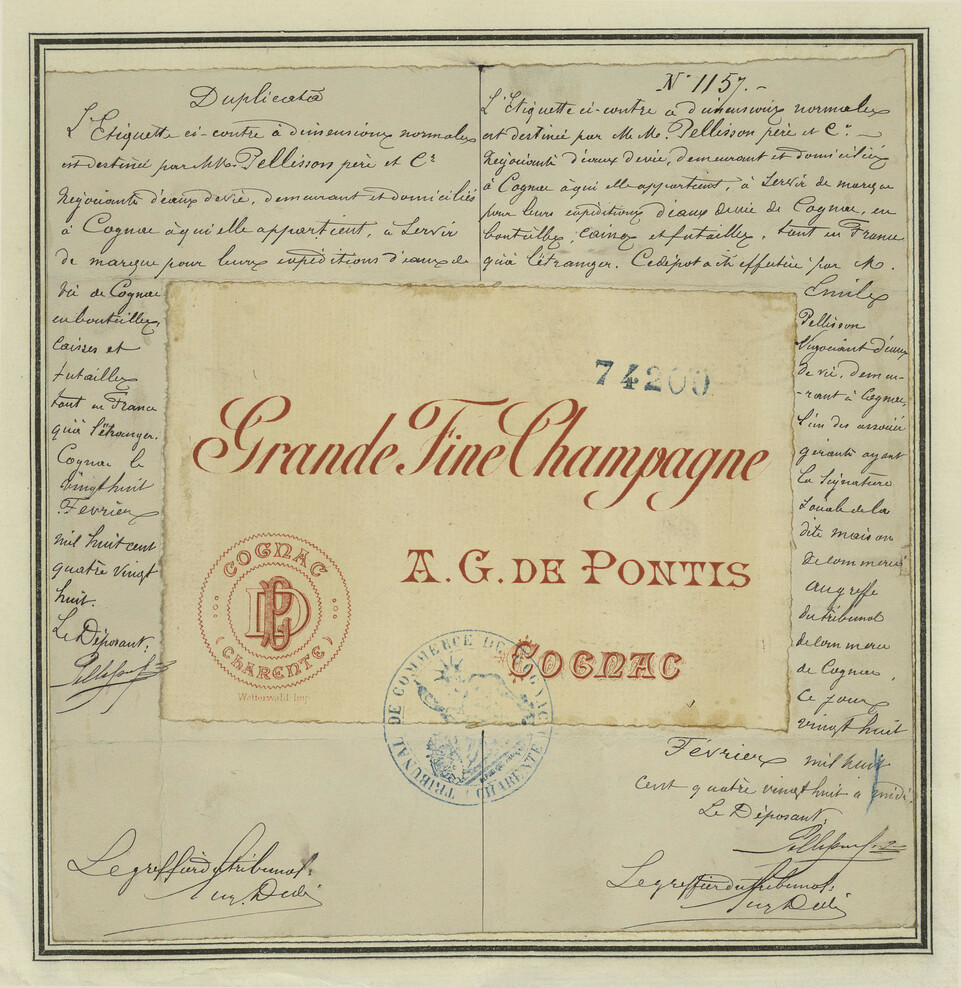 Duplicata
L'Etiquette ci-contre à dimensions normales
est destinée par MM. Pellisson père et Cie
Négociants d'eaux de vie, demeurant et domiciliés
à Cognac à qui elle appartient, à Servir
de marque pour leurs expéditions d'eaux de
vie de Cognac
en bouteilles,
Caisses et
futailles
tant en France
qu'à l'étranger.
Cognac le
vingt huit
Fevrier
mil huit cent
quatre vingt
huit.
Le Déposant:
N° 1157.-
L'Etiquette ci-contre à dimensions normales
est destinée par M.M. Pellisson père et Cie
Négociants d'eaux de vie, demeurant et domiciliés
à Cognac à qui elle appartient, à Servir de marque
pour leurs expéditions d'eaux de vie de Cognac, en
bouteilles, caisses et futailles, tant en France
qu'à l'étranger. Ce dépôt a été effectué par M.
Emile
Pellisson
Négociant d'eaux
de vie, demeu-
-rant à Cognac,
l'un des associés
gérants ayant
la Signature
Sociale de la
dite maison
de commerce
au greffe
du tribunal
de commerce
de Cognac,
Ce jour
vingt huit
Fevrier mil huit
cent quatre vingt huit à midi.
Le Déposant,
74200
Grande Fine Champagne
A. G. DE PONTIS
COGNAC
COGNAC
CHARENTE
Wetterwald Imp.
TRIBUNAL DE COMMERCE DE COGNAC
CHARENTE
Le greffier du tribunal:
Le greffier du tribunal: